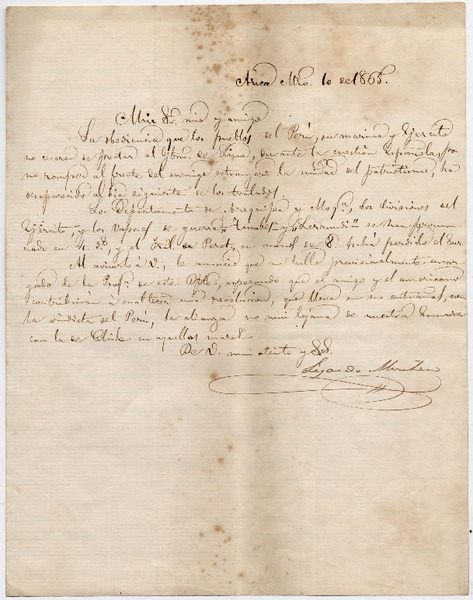 Arica Mzo. 10 de 1865.
Mui Sr. mio y amigo
La obediencia que los pueblos del Perú, su marina y Ejército
no cesaron de prestar al Gbno. de Lima, durante la cuestion Española, por
no romper al frente del enemigo extranjero la unidad del patriotismo, ha
desaparecido al dia siguiente de los tratados.
Los Departamentos de Arequipa y Moq.a, los divisiones del
Ejército, y los vapores de guerra "Tumbes" y "Lerzundi" se han pronun
ciado en
Al avisarlo á U., le anuncio que me hallo provisionalmente encar
gado de la Pref.a de este Dpto., esperando que el amigo y el americano
contribuiran á enaltecer una revolucion, que lleva en sus entrañas, con
la vindicta del Perú, la alianza no mui lejana de nuestra
con la de Chile en aquellos mares.
De U. mui atento y S.S.
Lizardo Montero